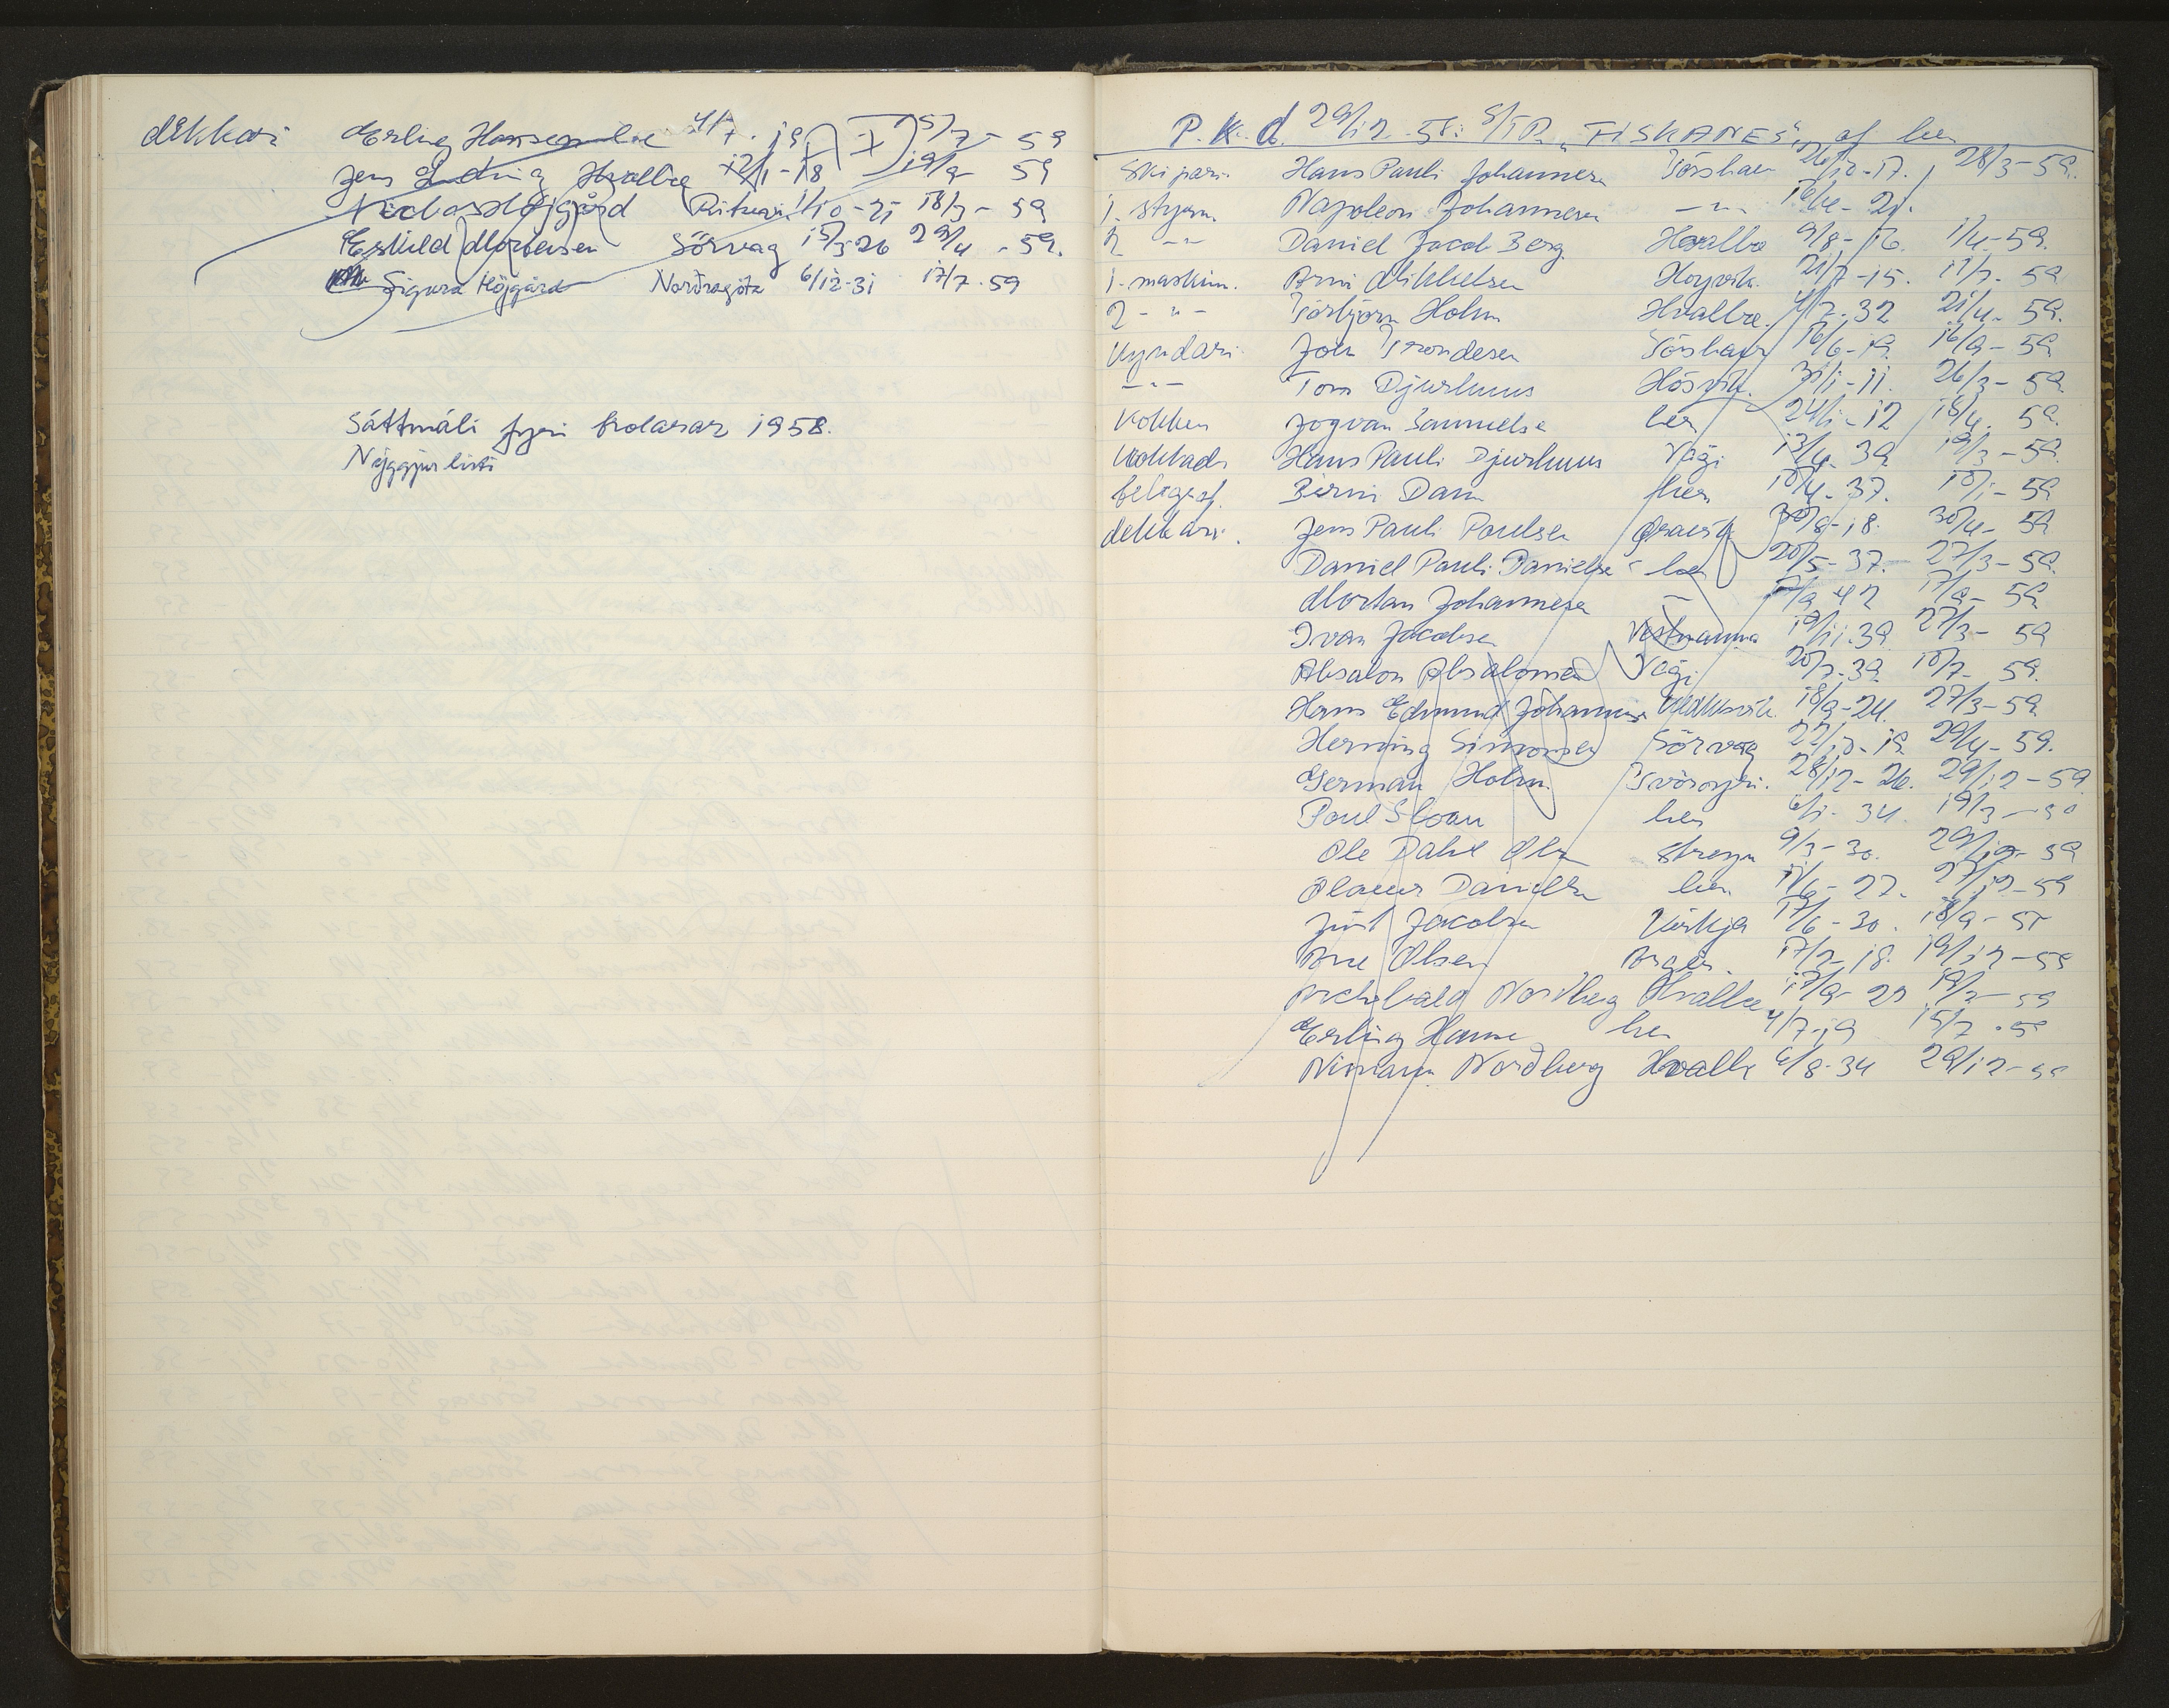 dekkari Erling Hansen 4/7 - 19 15/7 - 59
Jens Ludvig Hvalba 12/1 - 18 19/9 - 59
Niclas Højgård Rituvík 1/10 - 25 18/3 - 59
Eskild Mortensen Sörvag 15/3-26 29/4 - 59.
Sigurd Højgård Norðragöta 6/12-31 17/7 - 59
Sáttmáli fyri trolarar 1958.
Nýggjur listi
P. K. d. 29/12 - 58: S/TR. „FISKANES“, af her
Skipari Hans Pauli Johannesen Tórshavn 26/10-17. 28/3-59.
1. stýrm. Napoleon Johannesen - " - 16/4 - 20.
2 - " - Daniel Jacob Berg Hvalba 9/8 - 16. 1/4-59.
1. maskinm. Arni Mikkelsen Hoyvík 21/7-15. 11/7- 59
2 - " - Tórbjörn Holm Hvalba. 4/7-32 21/4- 59.
kyndari John Trondesen Tórshavn 16/6-19. 16/9- 59
- " - Tom Djurhuus Hósvík. 31/1-11. 26/3- 59.
kokkur Jógvan Samuelsen her 24/1-12 18/4. 59.
kokkadr. Hans Pauli Djurhuus Vági 13/4-39 19/3-59.
telegraf. Birni Dam her 10/4-37. 10/1-59
dekkari. Jens Pauli Poulsen 30/8-18. 30/4- 59
Daniel Pauli Danielsen her 20/5-37. 27/3-59.
Mortan Johannesen - 42 17/9- 59
Ivan Jacobsen Vestmanna 19/11-39 27/3- 59
Absalon Absalonsen Vági 20/7-39. 10/7- 59.
Hans Edmund Johannesen Klakksvík 18/9-24. 27/3-59
Herning Simonsen Sörvag 22/10-19 29/4-59.
German Holm Tvöroyri. 28/12-26. 29/12-59
Poul Sloan her 6/1-34. 19/3-
Ole Dahl Olsen Streyn 9/3-30. 29/12- 59
Olavur Danielsen her 11/6-27. 27/12-59
Just Jacobsen Kirkja 17/6-30. 18/9-
Arne Olsen Argir. 17/2-18. 19/12-59
Archibald Nordberg Hvalba 17/9-29 19/3-59
Erling Hansen her 4/7-19 15/7-
Nimann Nordberg Hvalba 6/8-34 29/12-